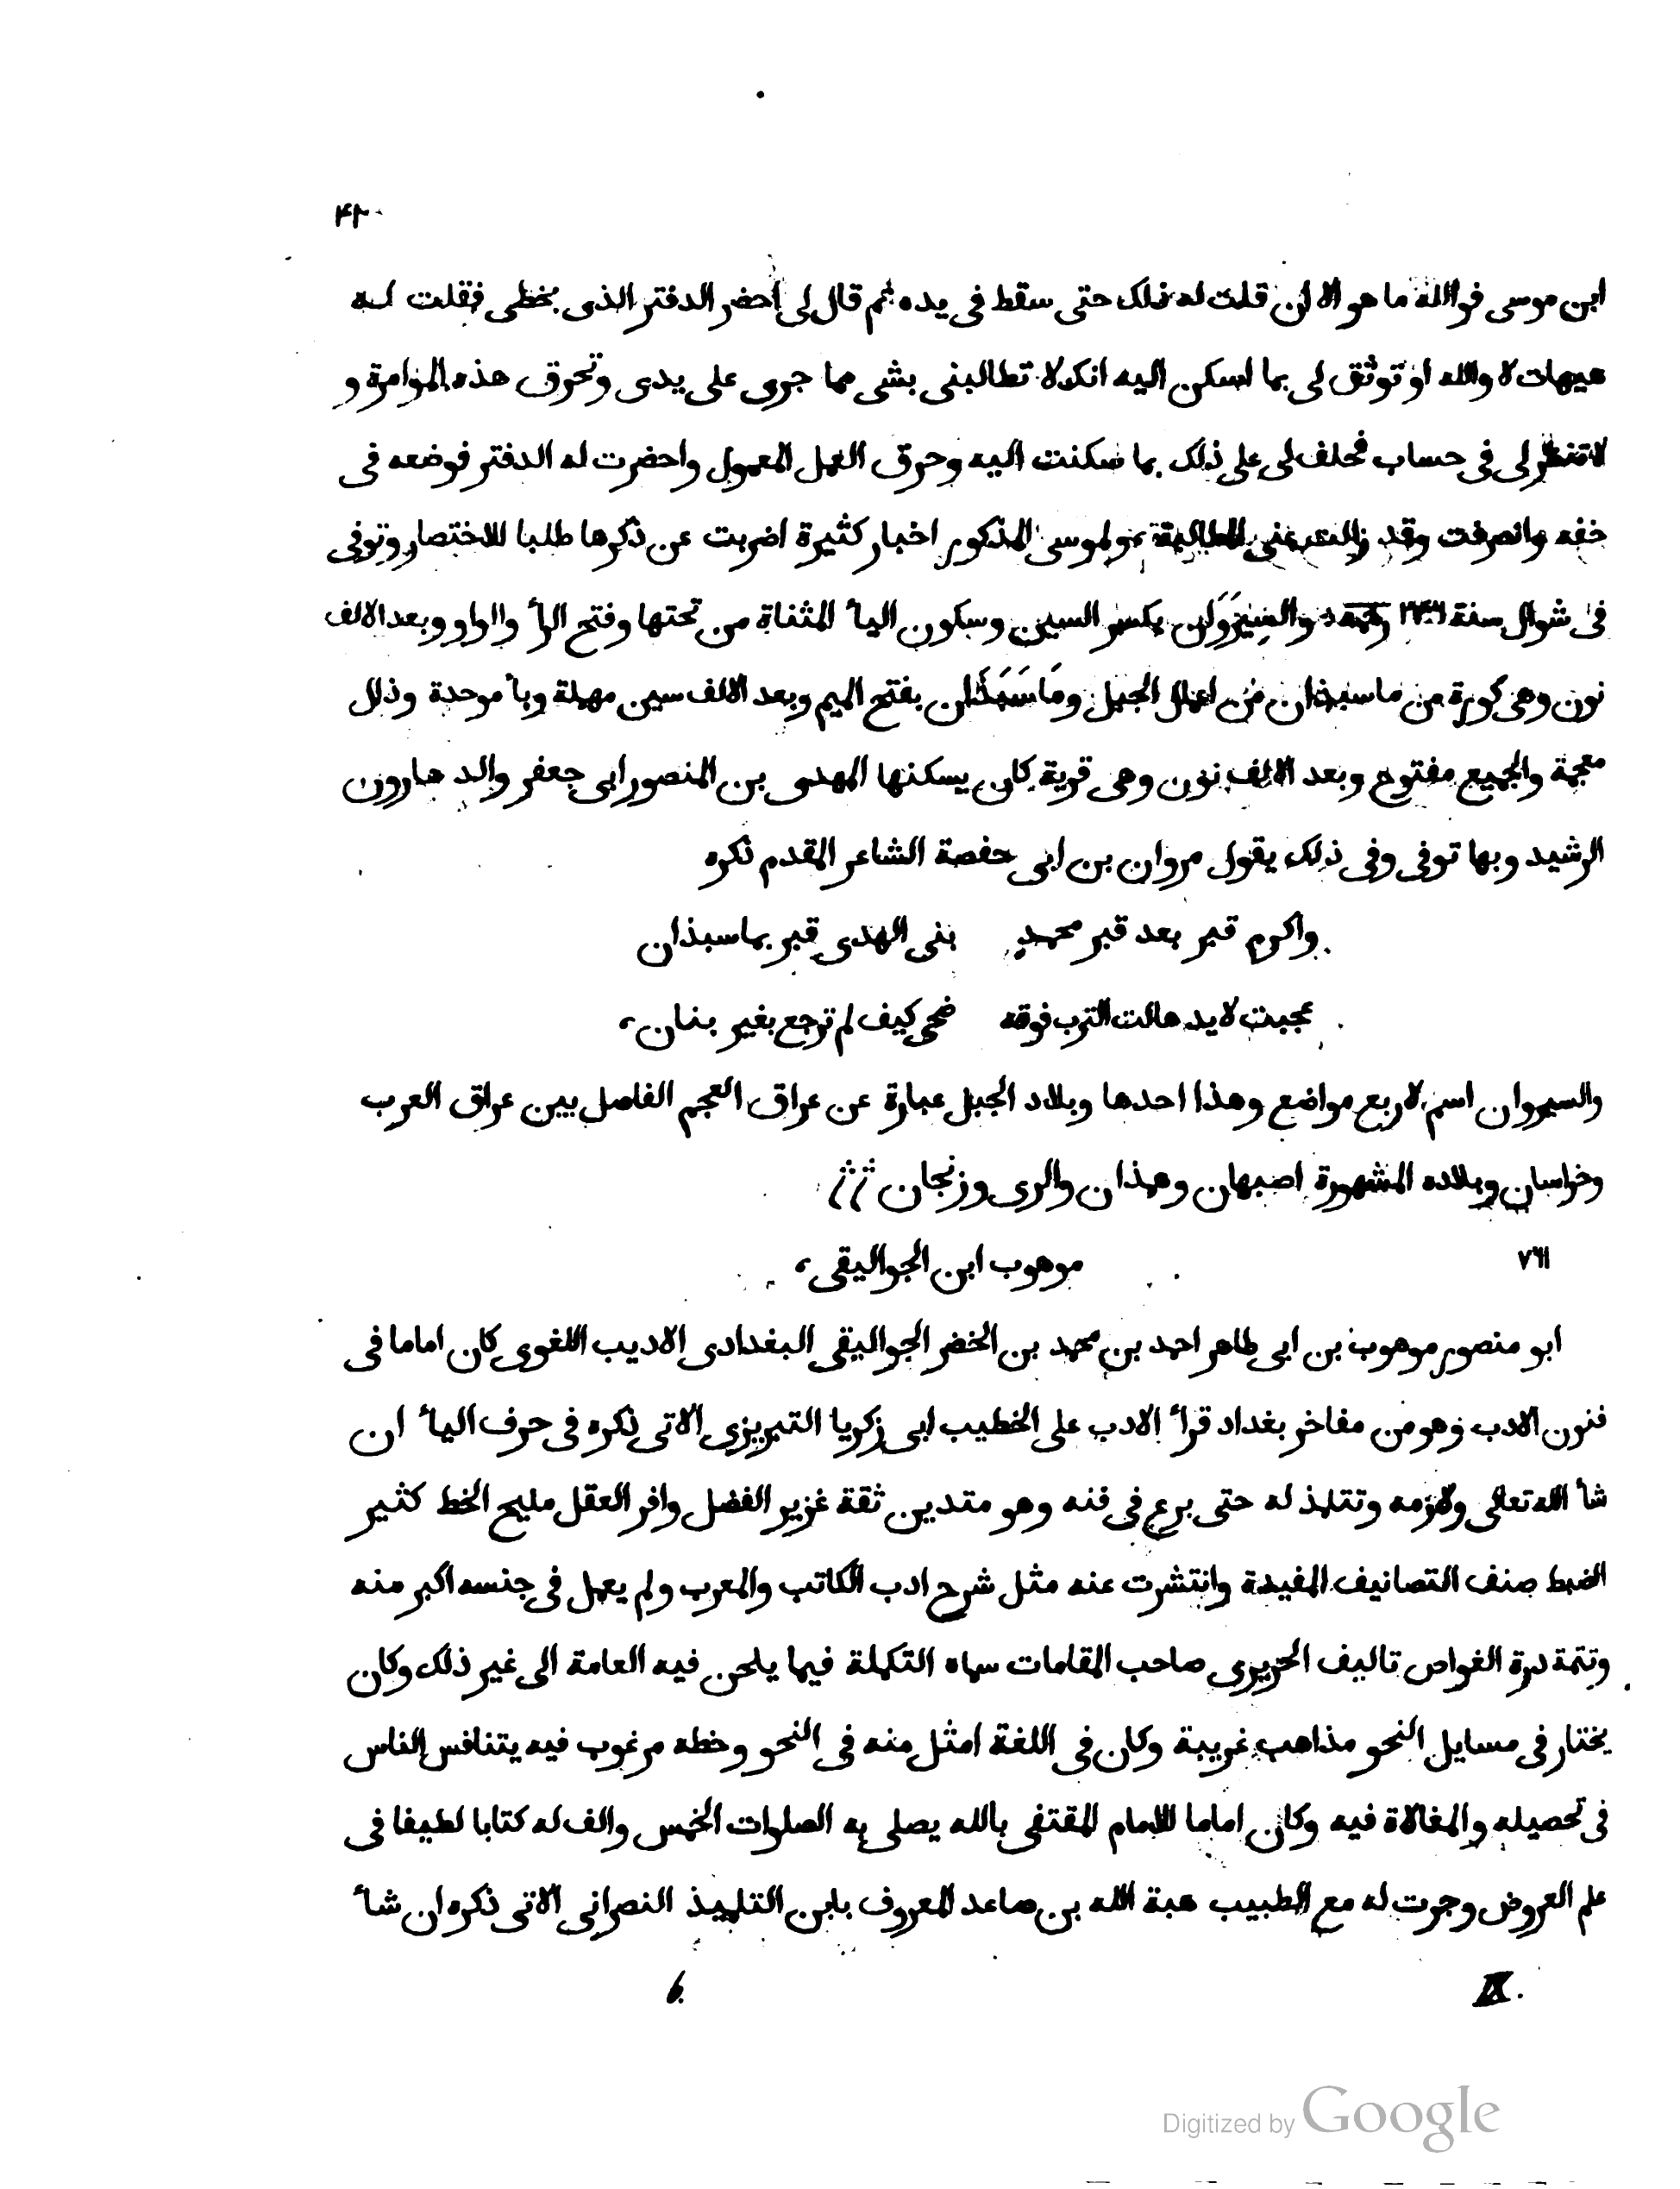 ٤٢
ابن موسى فوالله ما هو الا ان قلت له ذلك حتى سقط فى يده ثم قال لى احضر الدفتر الذى بخطى فقلت له
هيهات لا والله او توثق لى بما اسكن اليه انك لا تطالبنى بشى مما جرى على يدى وتحرق هذه الموامرة و
لا تنظر لى فى حساب فحلف لى على ذلك بما سكنت اليه وحرق العمل المعمول واحضرت له الدفتر فوضعه فى
خفه وانصرفت وقد زالت عنى المطالبة ولموسى المذكور اخبار كثيرة اضربت عن ذكرها طلبا للاختصار وتوفى
فى شوال سنة ٢٤٦ والسِيرَوَان بكسر السين وسكون اليأ المثناة من تحتها وفتح الرأ والواو وبعد الالف
نون وهى كورة من ماسبذان من اعمال الجبل ومَاسَبَذَان بفتح الميم وبعد الالف سين مهملة وبأ موحدة وذال
معجمة والجميع مفتوح وبعد الالف نون وهى قرية كان يسكنها المهدى بن المنصور ابى جعفر والد هارون
الرشيد وبها توفى وفى ذلك يقول مروان بن ابى حفصة الشاعر المقدم ذكره
واكرم قبر بعد قبر محمدٍ بنى الهدى قبر بماسبذان
عجبت لايد هالت الترب فوقه ضحى كيف لم ترجع بغير بنان،
والسيروان اسم لاربع مواضع وهذا احدها وبلاد الجبل عبارة عن عراق العجم الفاصل بين عراق العرب
وخراسان وبلاده المشهورة اصبهان وهمذان والرى وزنجان
٧٦١
موهوب ابن الجواليقى،
ابو منصور موهوب بن ابى طاهر احمد بن محمد بن الخضر الجواليقى البغدادى الاديب اللغوى كان اماما فى
فنون الادب وهو من مفاخر بغداد قرأ الادب على الخطيب ابى زكريا التبريزى الاتى ذكره فى حرف اليأ ان
شأ الله تعالى ولازمه وتتلمذ له حتى برع فى فنه وهو متدين ثقة غزير الفضل وافر العقل مليح الخط كثير
الضبط صنف التصانيف المفيدة وانتشرت عنه مثل شرح ادب الكاتب والمعرب ولم يعمل فى جنسه اكبر منه
وتتمة درة الغواص تاليف الحريرى صاحب المقامات سماه التكملة فيما يلحن فيه العامة الى غير ذلك وكان
يختار فى مسايل النحو مذاهب غريبة وكان فى اللغة امثل منه فى النحو وخطه مرغوب فيه يتنافس الناس
فى تحصيله والمغالاة فيه وكان اماما للامام المقتفى بالله يصلى به الصلوات الخمس والف له كتابا لطيفا فى
علم العروض وجرت له مع الطبيب هبة الله بن صاعد المعروف بابن التلميذ النصرانى الاتى ذكره ان شأ
IX. 6
Digitized by Google